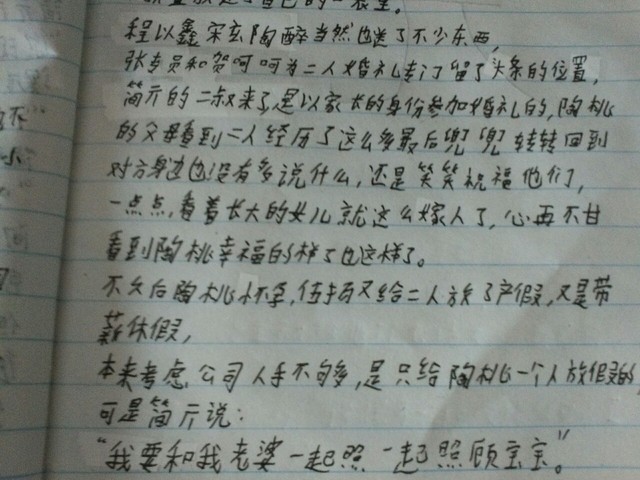 自己的一表里。
程以鑫宋玄陶醉当然也送了不少东西,
张专员和贺呵呵为二人婚礼专门留了头条的位置,
简亓的二叔来了,是以家长的身份参加婚礼的,陶桃
的父母看到二人经历了这么多最后兜兜转转回到
对方身边也没有多说什么,还是笑笑祝福他们,
一点点,看着长大的女儿就这么嫁人了,心再不甘
看到陶桃幸福的样子也这样了。
不久后陶桃怀孕,伍扬又给二人放了产假,又是带
薪休假,
本来考虑公司人手不够多,是只给陶桃一个人放假的
可是简亓说:
“我要和我老婆一起照一起照顾宝宝。”